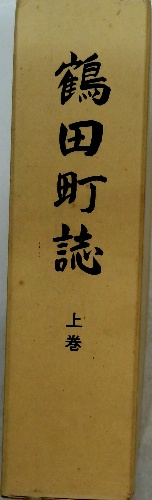 鶴田町誌
上巻